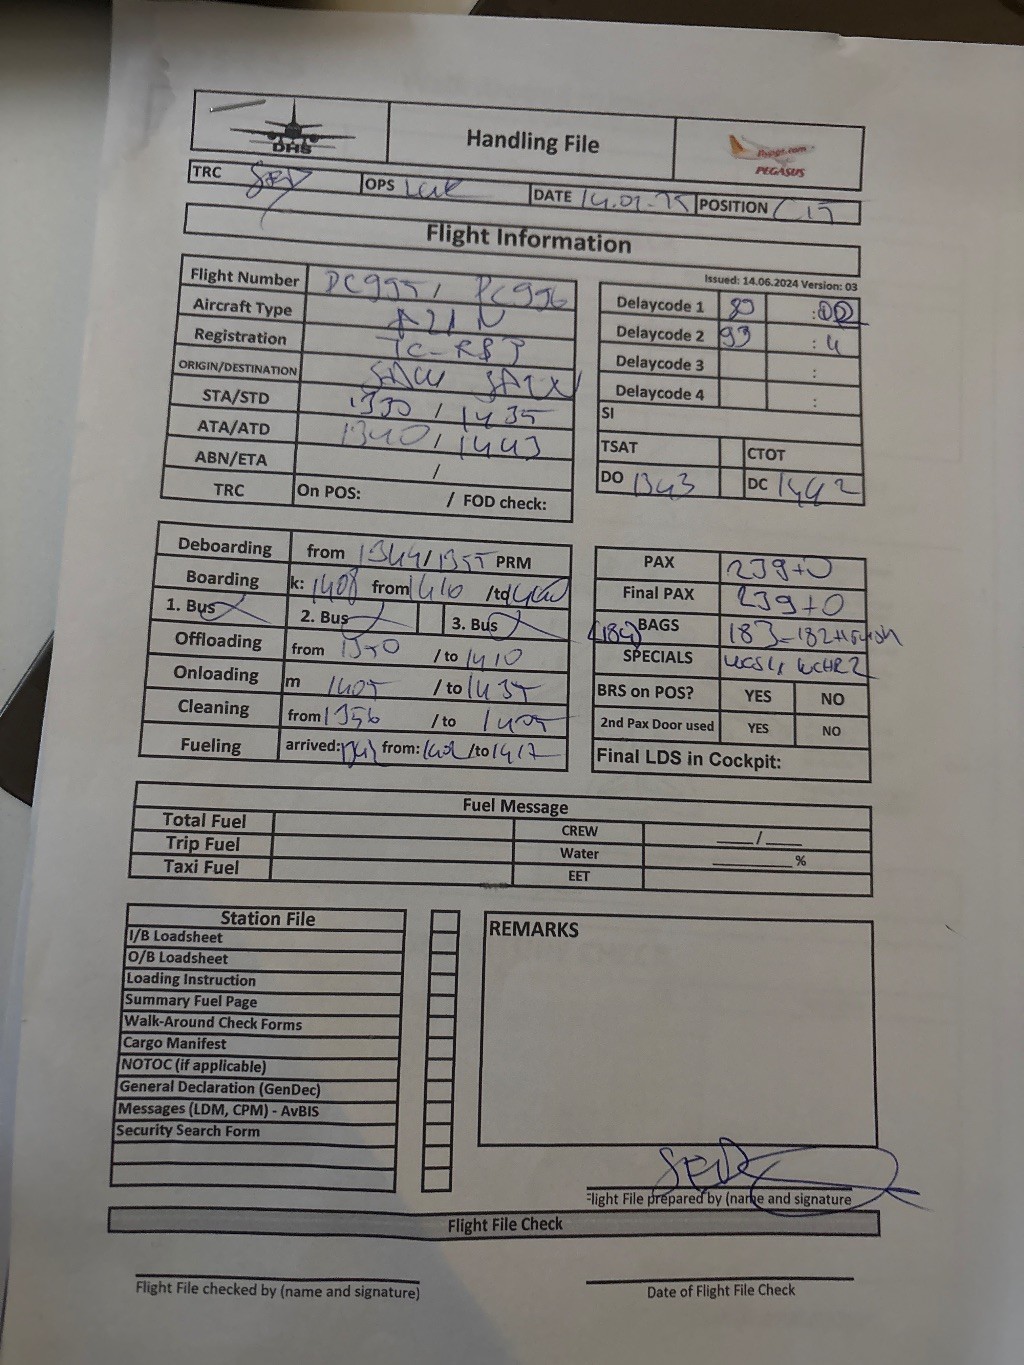 DHS Handling File flypgs.com PEGASUS
TRC SED OPS DATE 14.01.25 POSITION C15
Flight Information
Issued: 14.06.2024 Version: 03
Flight Number PC995 / PC996
Aircraft Type A21N
Registration TC-RBJ
ORIGIN/DESTINATION SAW
STA/STD 1330 / 1435
ATA/ATD 1340 / 1443
ABN/ETA /
TRC On POS: / FOD check:
Delaycode 1 :
Delaycode 2 93 : 4
Delaycode 3 :
Delaycode 4 :
SI
TSAT CTOT
DO 1343 DC 1442
Deboarding from 1344/1355 PRM
Boarding k: 1408 from 1410 /to
1. Bus 2. Bus 3. Bus
Offloading from 1350 / to 1410
Onloading m 1405 / to 1435
Cleaning from 1356 / to 1405
Fueling arrived: from: 1402 /to 1417
PAX 239+0
Final PAX 239+0
(184) BAGS 183-182+
SPECIALS WCHR2
BRS on POS? YES NO
2nd Pax Door used YES NO
Final LDS in Cockpit:
Fuel Message
Total Fuel CREW ___/___
Trip Fuel Water ________%
Taxi Fuel EET
Station File
I/B Loadsheet
O/B Loadsheet
Loading Instruction
Summary Fuel Page
Walk-Around Check Forms
Cargo Manifest
NOTOC (if applicable)
General Declaration (GenDec)
Messages (LDM, CPM) - AvBIS
Security Search Form
REMARKS
SED
Flight File prepared by (name and signature
Flight File Check
Flight File checked by (name and signature)
Date of Flight File Check